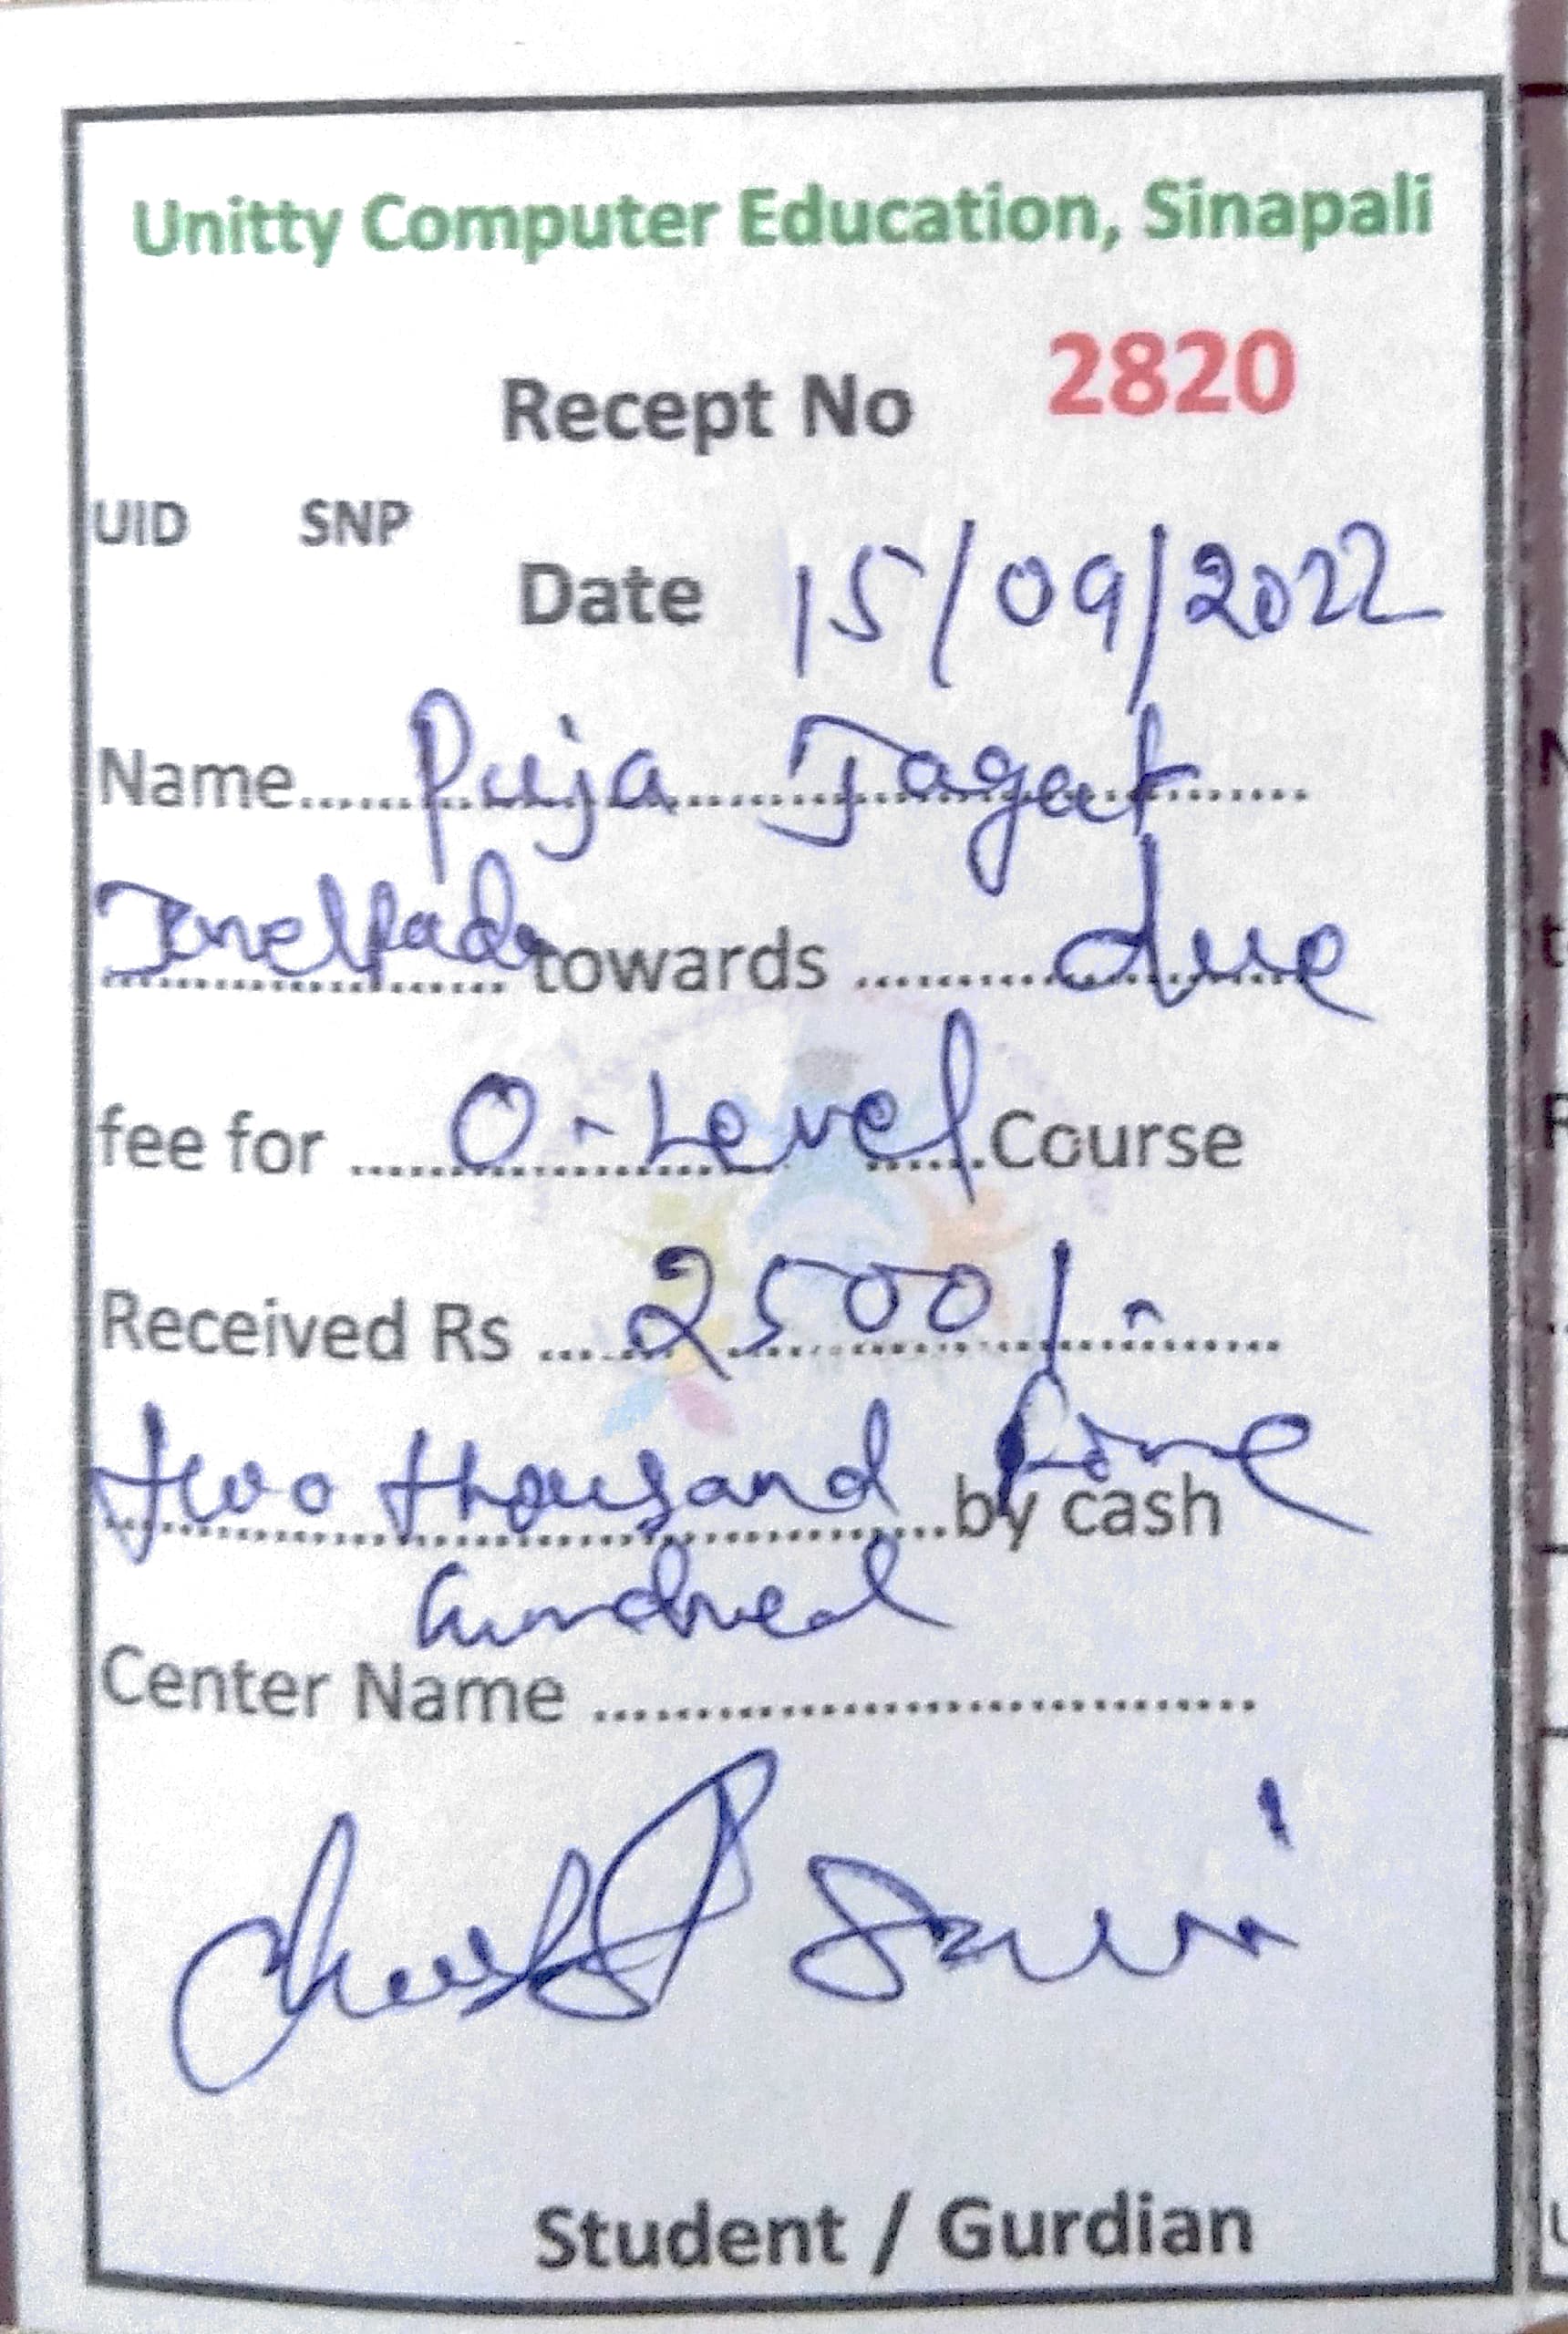 Unitty Computer Education, Sinapali
Recept No 2820
UID SNP
Date 15/09/2022
Name...... Puja Jagat
towards ............ due
fee for ........ O-Level ......Course
Received Rs ..... 2500/-
two thousand five by cash
hundred
Center Name ................................
Student / Gurdian